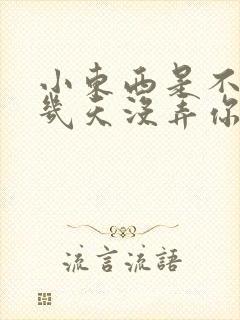 小東西是不
幾天沒弄你
流言流語